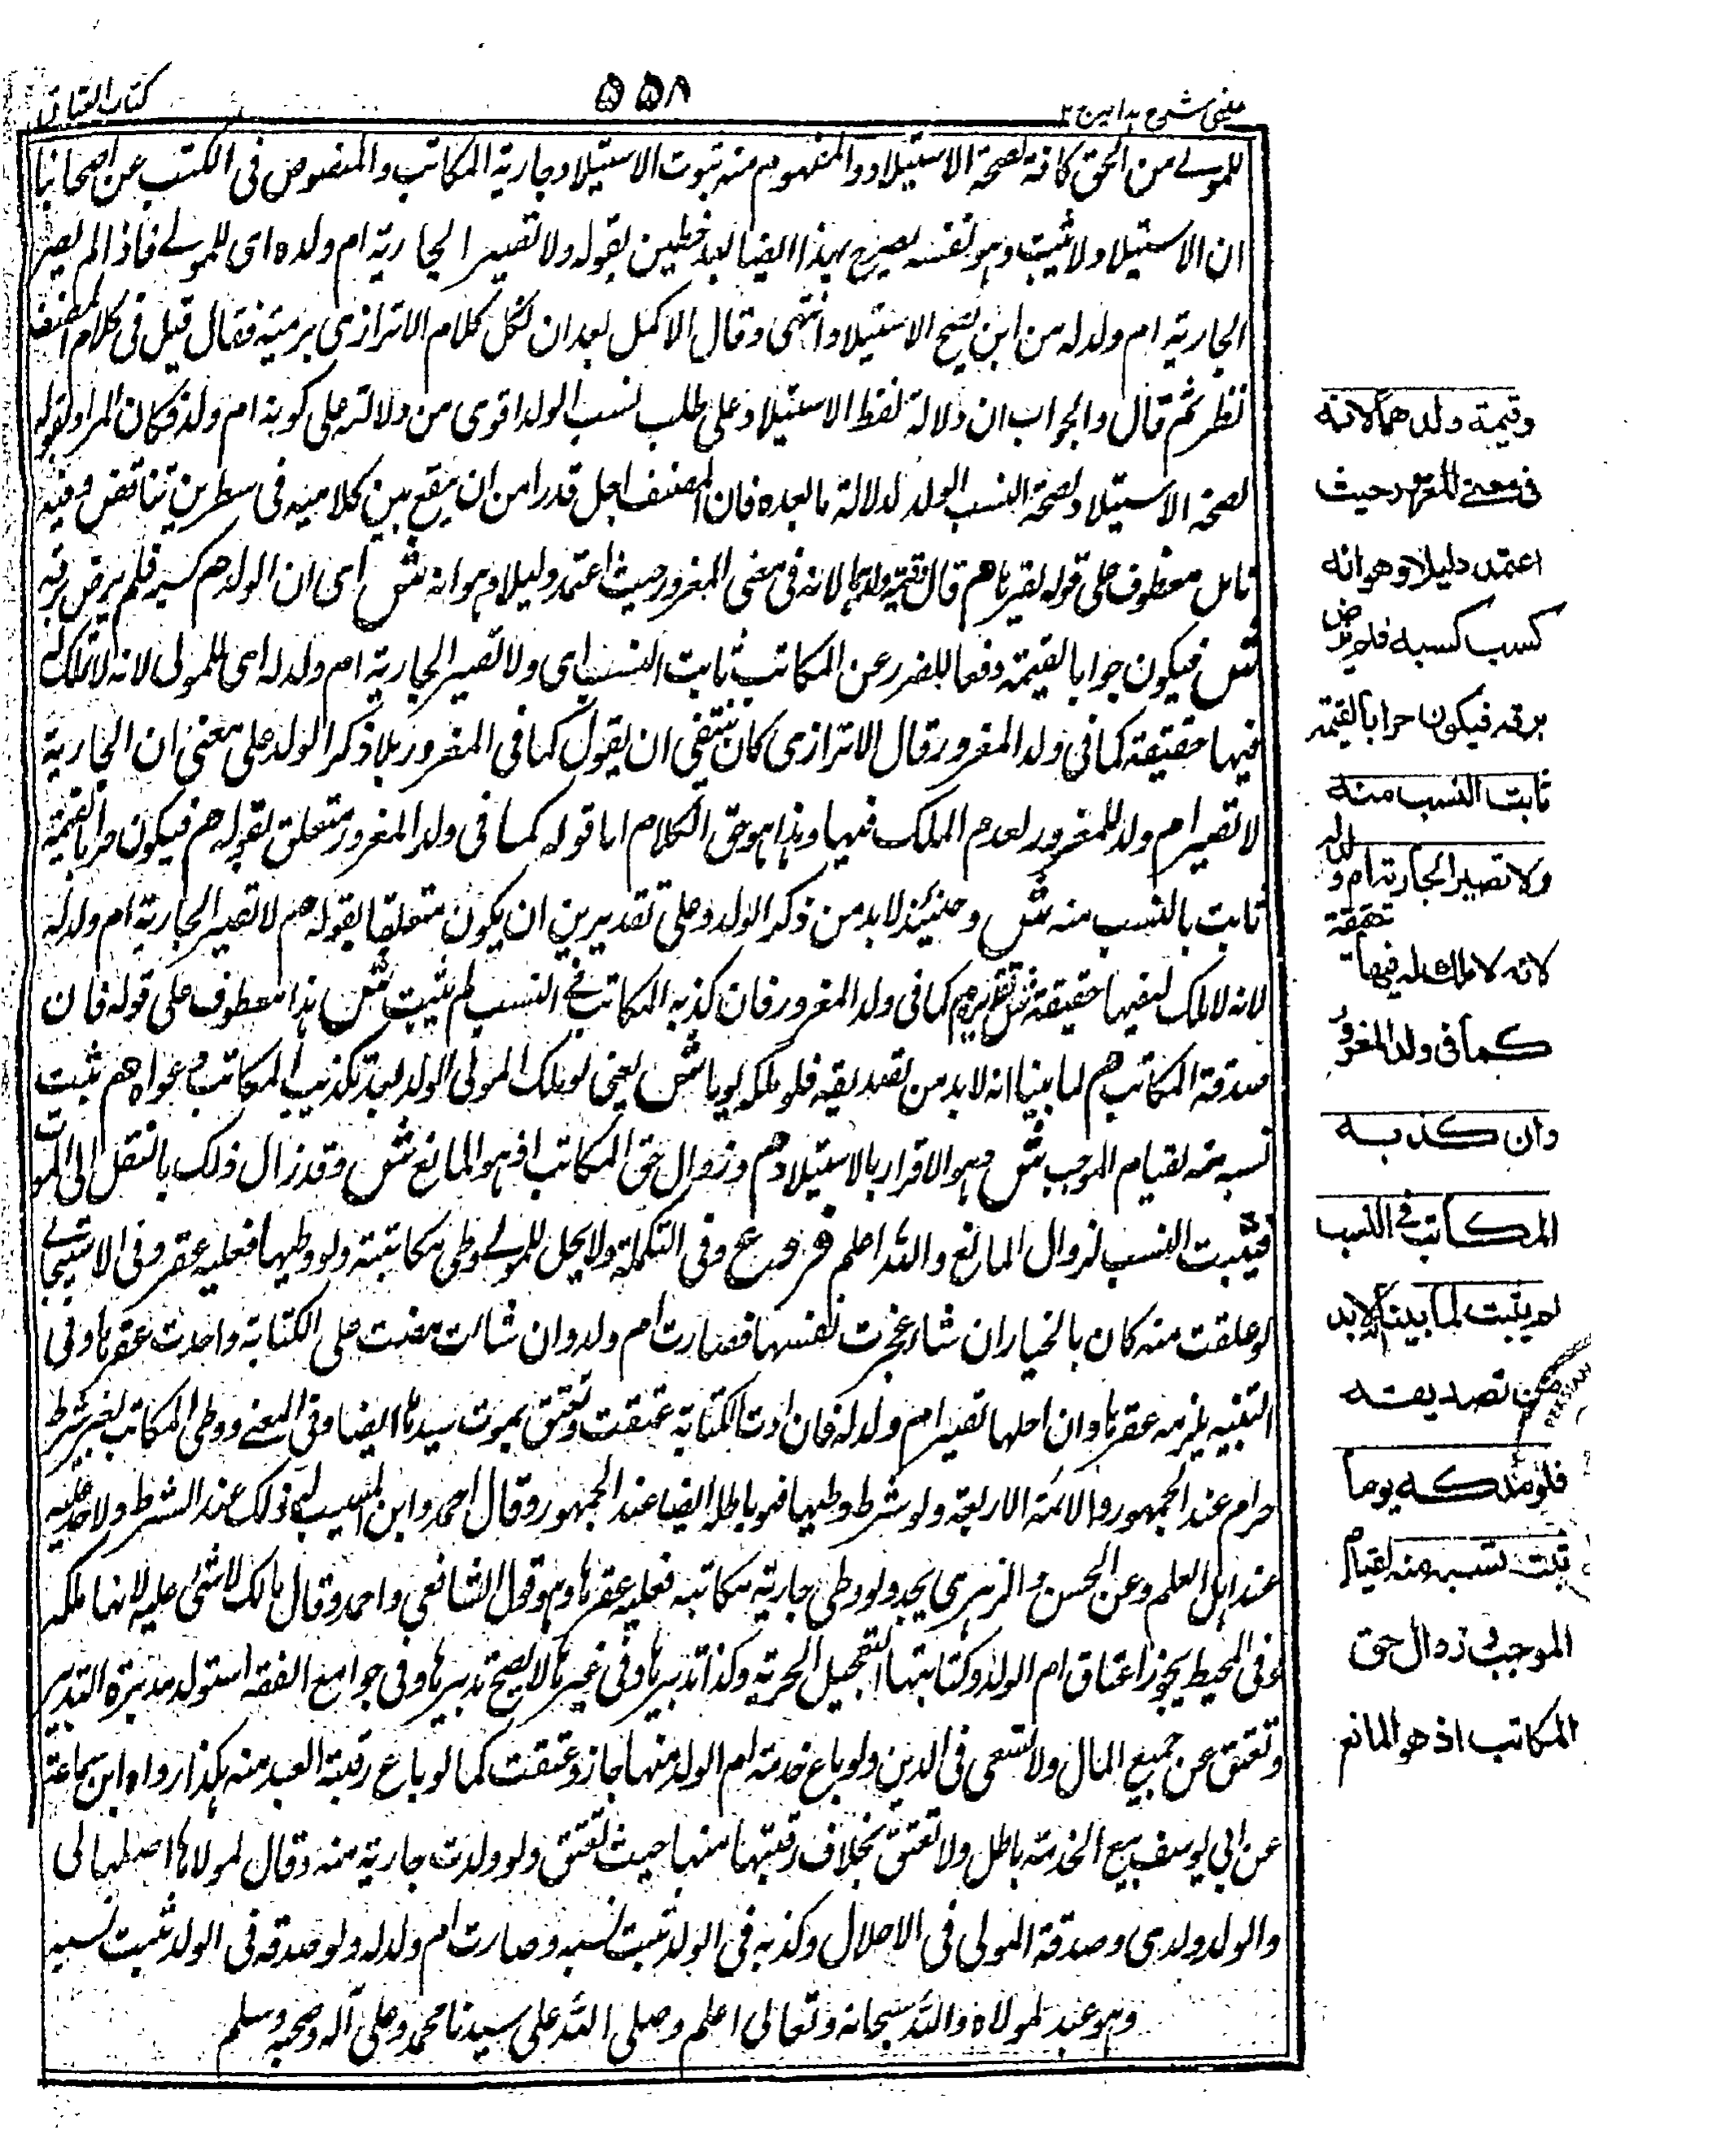 عینی شرح ہدایہ ج ۲
۵۵۸
کتاب العتاق
للمولے من الحق كافة لصحة الاستيلاد والمفهوم منه ثبوت الاستيلاد جارية المكاتب والمنصوص فی الكتب عن اصحابنا
ان الاستيلاد لا يثبت وهو نفسه يصرح بهذا ايضا بعد خطين بقوله ولا تصير الجارية ام ولده ای للمولے فاذا لم يصر
الجارية ام ولد له من اين يصح الاستيلاد انتهى وقال الاكمل بعد ان نقل كلام الاترازی برمته فقال قيل فی كلام المصنف
نظر ثم قال والجواب ان دلالة لفظ الاستيلاد على طلب نسب الولد اقوى من دلالته على كونها ام ولد فكان المراد بقوله
لصحة الاستيلاد لصحة النسب الولد لدلالة ما بعده فان المصنف اجل قدرا من ان يقع بين كلاميه فی سطرين تناقض وفيه
تامل معطوف على قوله لقيرها هم قال وقيمة ولدها لانه فی معنى المغرور حيث اعتمد دليلا وهو انه ش ای ان الولد هم كسب فلم يرض برقه
ش فيكون حرا بالقيمة دفعا للضرر عن المكاتب ثابت النسب ای ولا تصير الجارية ام ولد له ای للمولى لانه لا ملك له
فيها حقيقة كما فی ولد المغرور قال الاترازی كان ينبغی ان يقول كما فی المغرور بلا ذكر الولد على معنى ان الجارية
لا تصير ام ولد للمغرور لعدم الملك فيها وهذا هو حق الكلام اما قوله كما فی ولد المغرور متعلق بقوله هم فيكون حرا بالقيمة
ثابت بالنسب منه ش وحينئذ لا بد من ذكر الولد وعلى تقديرين ان يكون متعلقا بقوله هم لا تصير الجارية ام ولد له
لانه لا ملك له فيها حقيقة ش تقريره هم كما فی ولد المغرور فان كذبه المكاتب فے النسب لم يثبت ش هذا معطوف على قوله فان
صدقة المكاتب هم لما بينا انه لا بد من تصديقه فلو ملكه يوما ش يعنی لو ملك المولى الولد بعد تكذيب المكاتب دعواه هم ثبت
نسبه منه لقيام الموجب ش وهو الاقرار بالاستيلاد هم وزوال حق المكاتب اذ هو المانع ش وقد زال ذلك بالنقل الى المولى
فيثبت النسب لزوال المانع والله اعلم فروع وفی التكملة ولا يحل للمولے وطی مكاتبته ولو وطيها فعليه عقر وفی الاسبيجابی
لو علقت منه كان بالخيار ان شاء عجزت نفسها فصارت ام ولد وان شاءت مضت على الكتابة واخذت عقرها وفی
التنبيه يلزمه عقرها وان احلها تصير ام ولد له فان ادت الكتابة عتقت وتعتق بموت سيدها ايضا وفی المغنے ووطی المكاتب بغير شرط
حرام عند الجمهور والائمة الاربعة ولو شرط وطيها فهو باطل ايضا عند الجمهور وقال احمد وابن المسيب له ذلك عند الشرط ولا حد عليه
عند اهل العلم وعن الحسن والزهری يحد ولو وطی جارية مكاتبه فعليه عقرها وهو قول الشافعی واحمد وقال مالك لا شئ عليه لانها ملكه
وفی المحيط يجوز اعتاق ام الولد وكتابتها لتعجيل الحرية وكذا تدبيرها وفی غيرها لا يصح تدبيرها وفی جوامع الفقه استولد مدبرته التدبير
وتعتق عن جميع المال ولا تسعى فی الدين ولو باع خدمة ام الولد منها جاز وعتقت كما لو باع رقبة العبد منه هكذا رواه ابن سماعة
عن ابی يوسف بيع الخدمة باطل ولا تعتق بخلاف رقبتها منها حيث تعتق ولو ولدت جارية منه وقال لمولاها احللتها لی
والولد ولدی وصدقة المولى فی الاحلال وكذبه فی الولد ثبت نسبه وصارت ام ولد له ولو صدقه فی الولد ثبت نسبه
وهو عبد لمولاه والله سبحانه وتعالى اعلم وصلى الله على سيدنا محمد وعلى آله وصحبه وسلم
وقيمة ولدها لانه
فی معنے المغرور حيث
اعتمد دليلا وهو انه
كسب كسبه فلم يرض
برقه فيكون حرا بالقيمة
ثابت النسب منه
ولا تصير الجارية ام ولد له
لانه لا ملك له فيها حقيقة
كما فی ولد المغرور
وان كذبه
المكاتب فے النسب
لم يثبت لما بينا انه لا بد
من تصديقه
فلو ملكه يوما
ثبت نسبه منه لقيام
الموجب وزوال حق
المكاتب اذ هو المانع